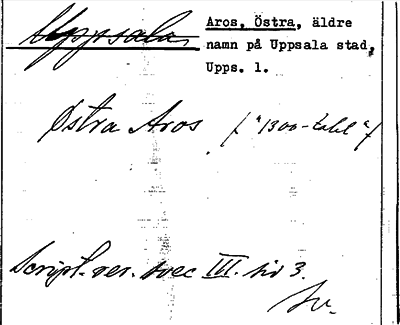 Uppsala
Aros, Östra, äldre
namn på Uppsala stad,
Upps. l.
Østra Aros ("1300-talet")
Script. rer. svec III. sid 3.